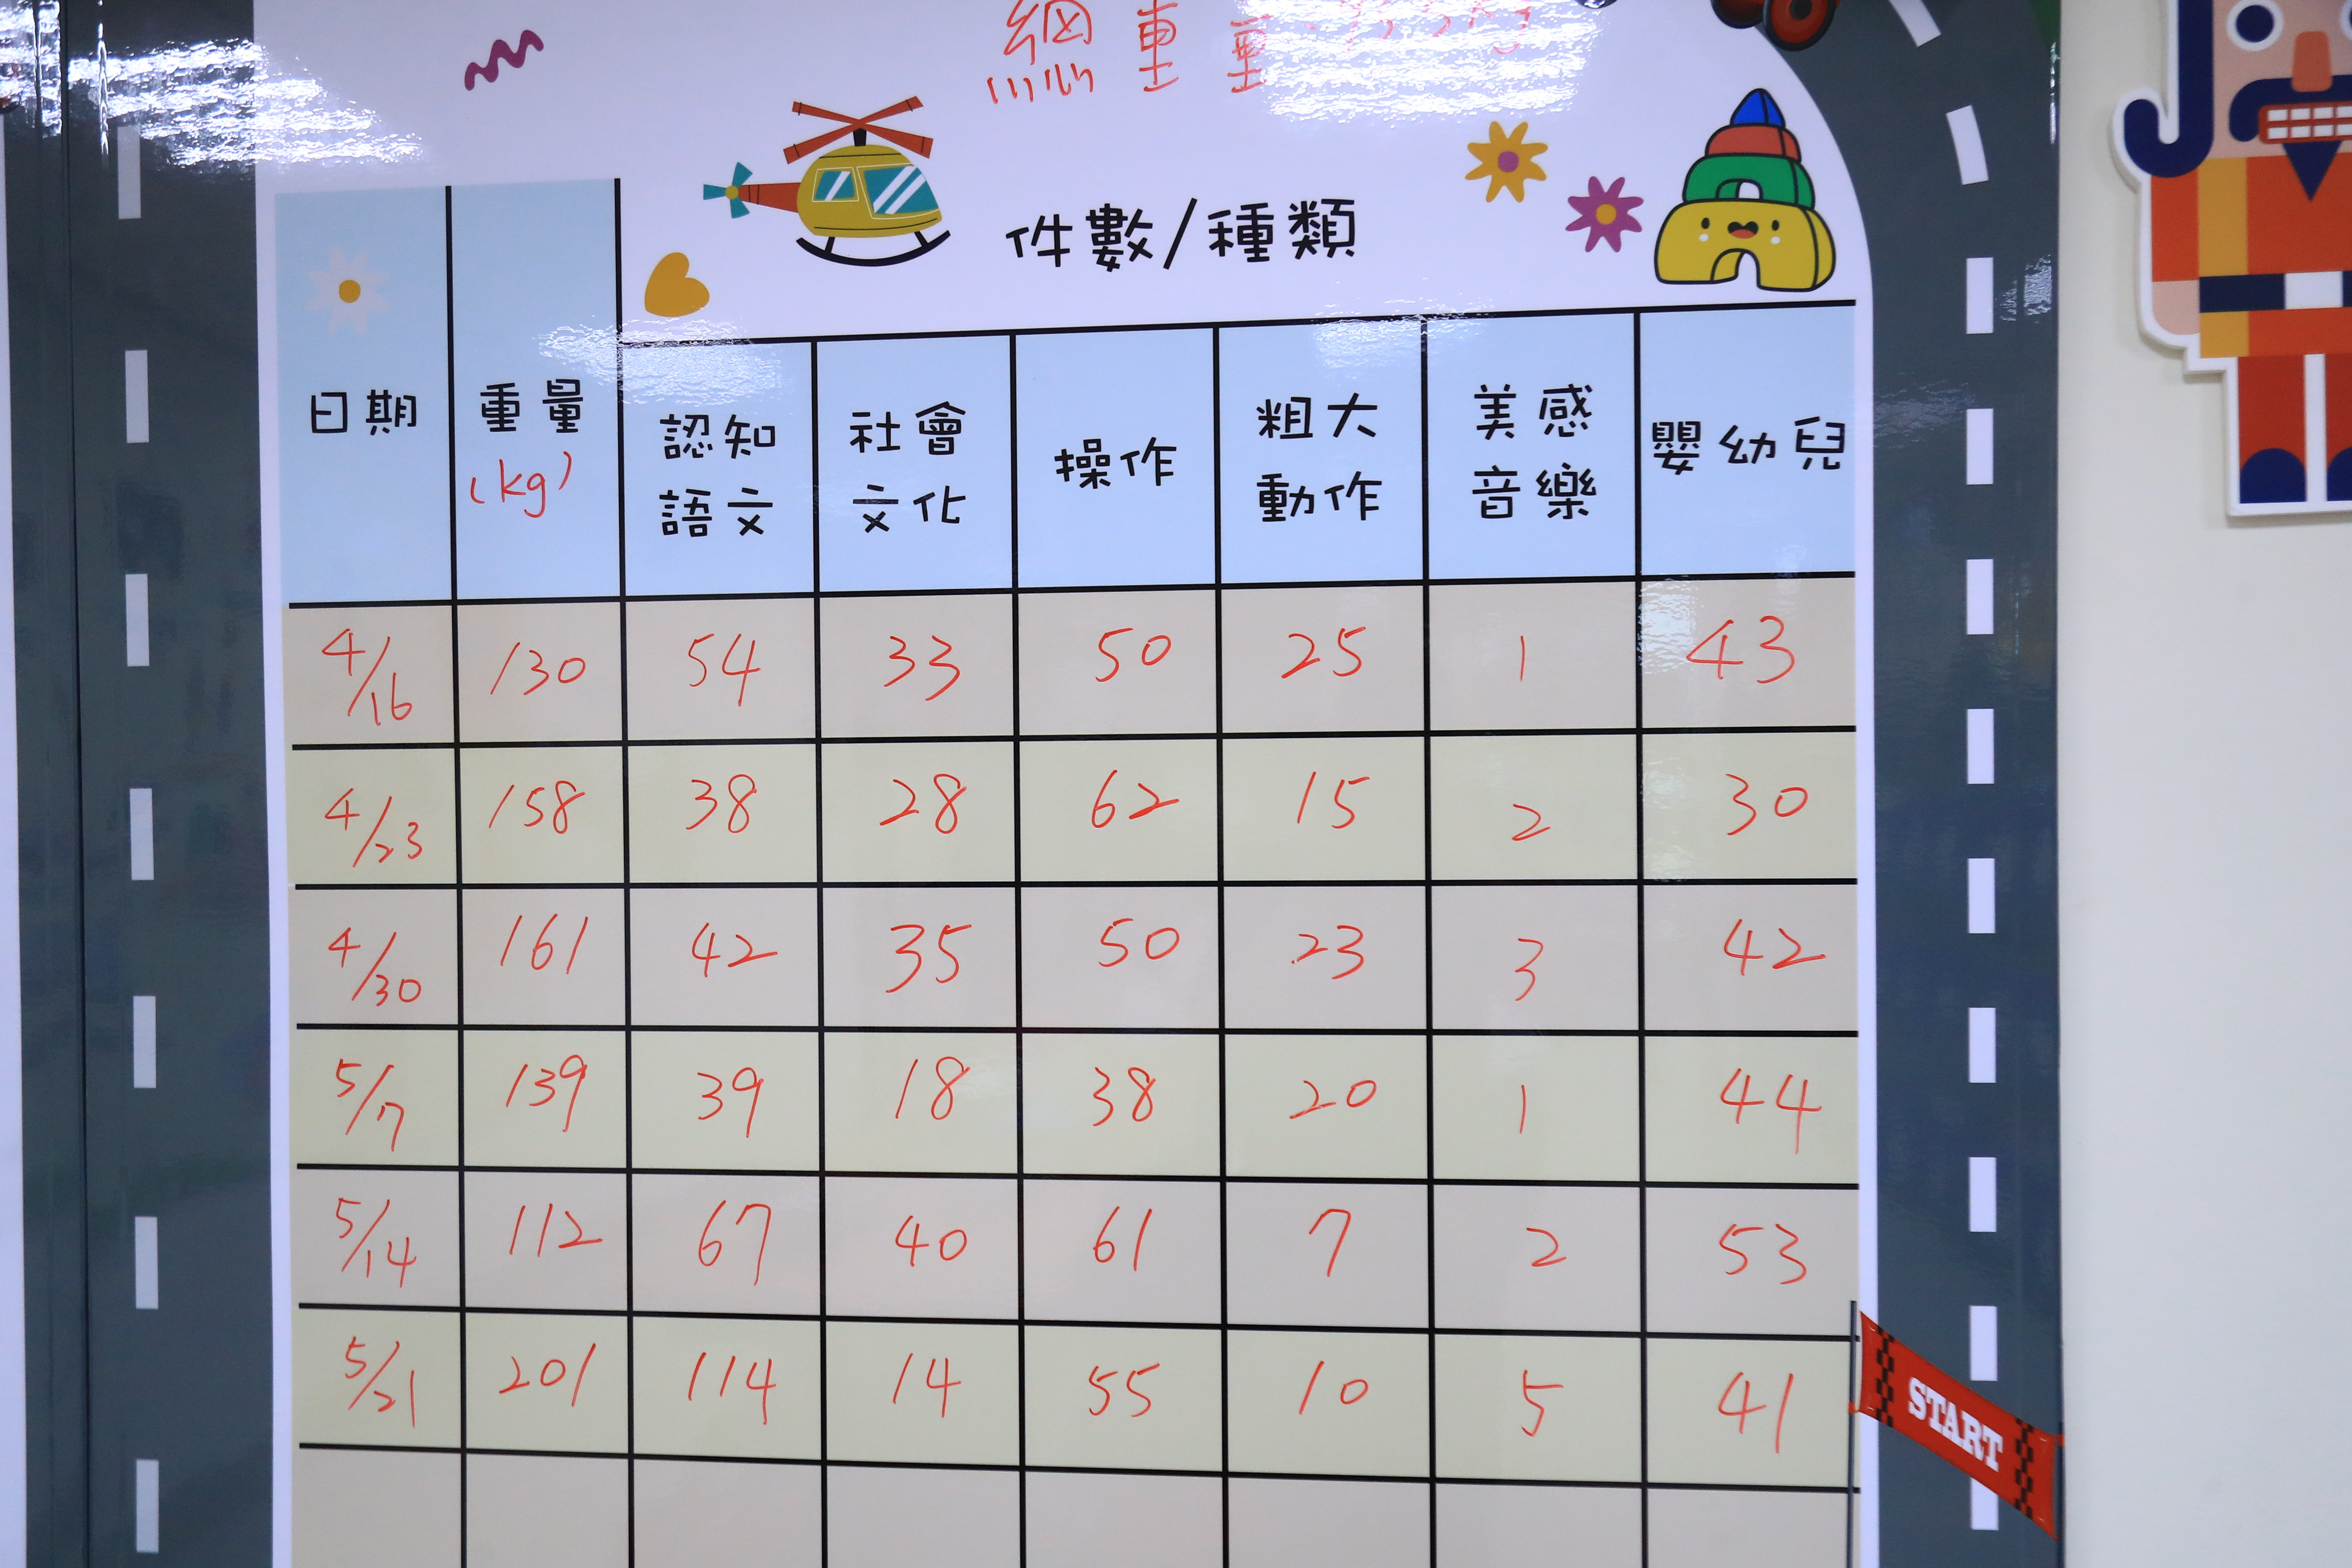 總重量
件數/種類
日期 重量 (kg) 認知語文 社會文化 操作 粗大動作 美感音樂 嬰幼兒
4/16 130 54 33 50 25 1 43
4/23 158 38 28 62 15 2 30
4/30 161 42 35 50 23 3 42
5/7 139 39 18 38 20 1 44
5/14 112 67 40 61 7 2 53
5/21 201 114 14 55 10 5 41
START